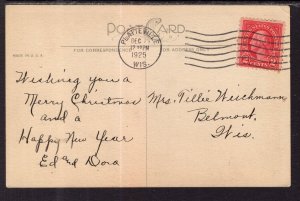 POST CARD
FOR CORRESPONDENCE
FOR ADDRESS ONLY
PLATTEVILLE
DEC
12 PM
1925
WIS.
MADE IN U.S.A.
Wishing you a
Merry Christmas
and a
Happy New Year
Ed and Dora
Mrs. Tillie Weichmann,
Belmont,
Wis.